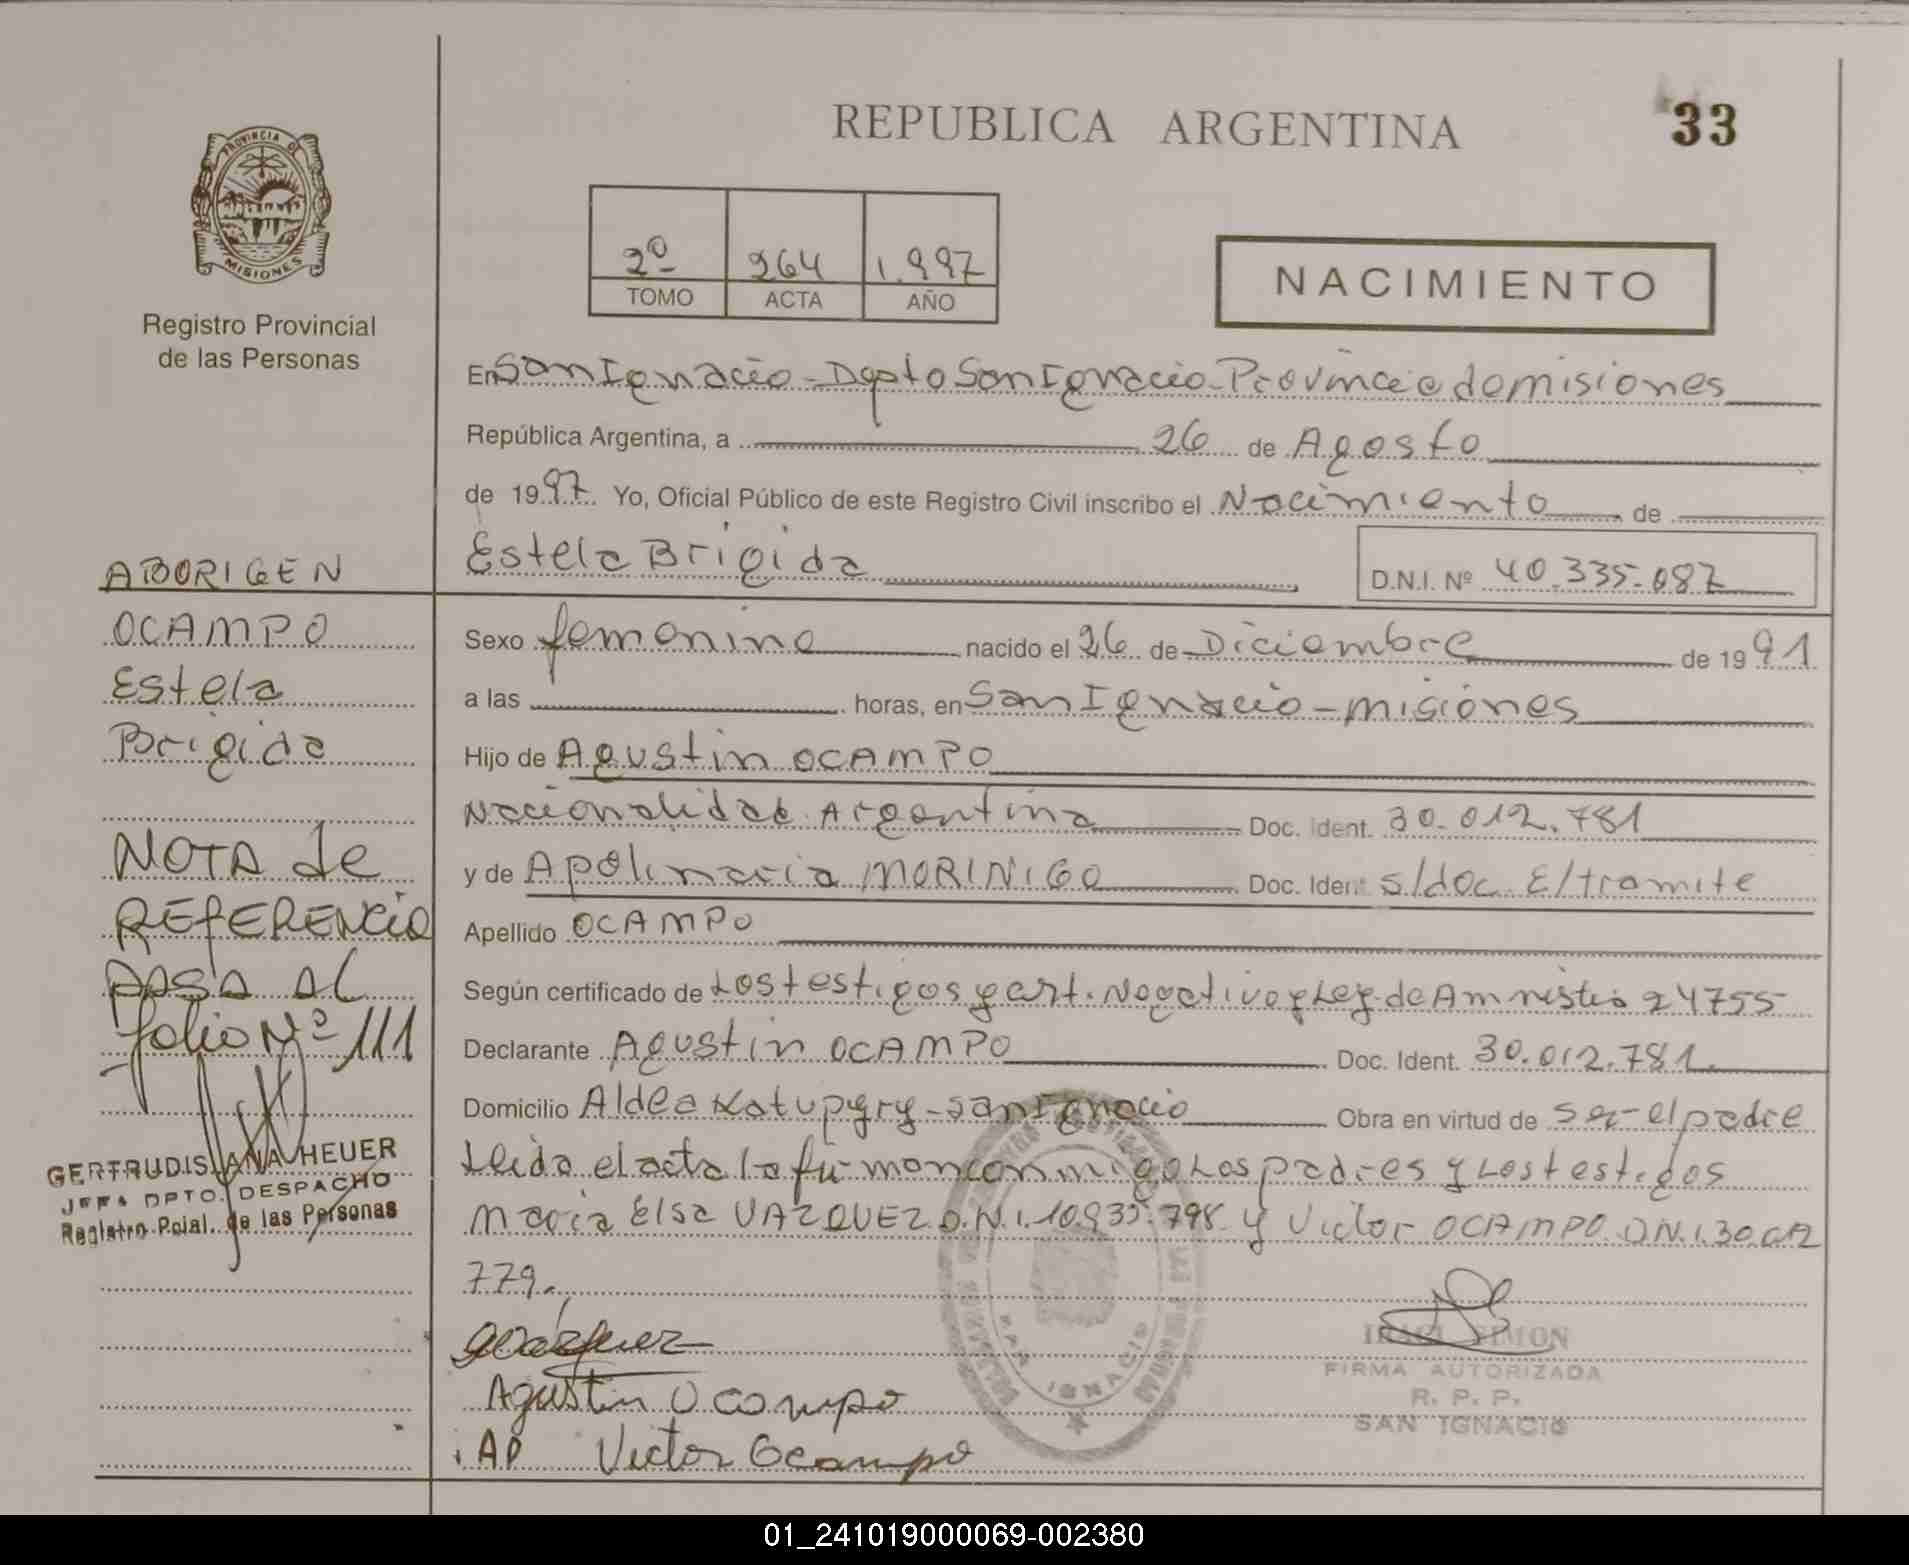 REPUBLICA ARGENTINA
33
PROVINCIA DE
MISIONES
Registro Provincial
de las Personas
2º 264 1.997
TOMO ACTA AÑO
NACIMIENTO
En San Ignacio - Dpto San Ignacio - Provincia de misiones
República Argentina, a 26 de Agosto
de 1997 Yo, Oficial Público de este Registro Civil inscribo el Nacimiento de
Estela Brigida
D.N.I. Nº 40.335.087
ABORIGEN
OCAMPO
Estela
Brigida
NOTA de
REFERENCIA
PASA AL
folio Nº 111
GERTRUDIS ANA HEUER
JEFA DPTO. DESPACHO
Registro Pcial. de las Personas
Sexo femenino nacido el 26 de Diciembre de 1991
a las horas, en San Ignacio - misiones
Hijo de Agustin OCAMPO
Nacionalidad Argentina Doc. Ident. 30.012.781
y de Apolinaria MORINIGO Doc. Ident s/doc E/tramite
Apellido OCAMPO
Según certificado de Los testigos y cert. Negativo y Ley de Amnistia 24755
Declarante Agustin OCAMPO Doc. Ident. 30.012.781.
Domicilio Aldea Katupyry - san Ignacio Obra en virtud de ser el padre
Leida el acta la firman conmigo Los padres y Los testigos
maria Elsa VAZQUEZ D.N.I. 10.935.798 y Victor OCAMPO D.N.I. 30.012
779.
Agustin Ocampo
AP Victor Ocampo
SAN IGNACIO
SIMON
FIRMA AUTORIZADA
R. P. P.
SAN IGNACIO
01_241019000069-002380